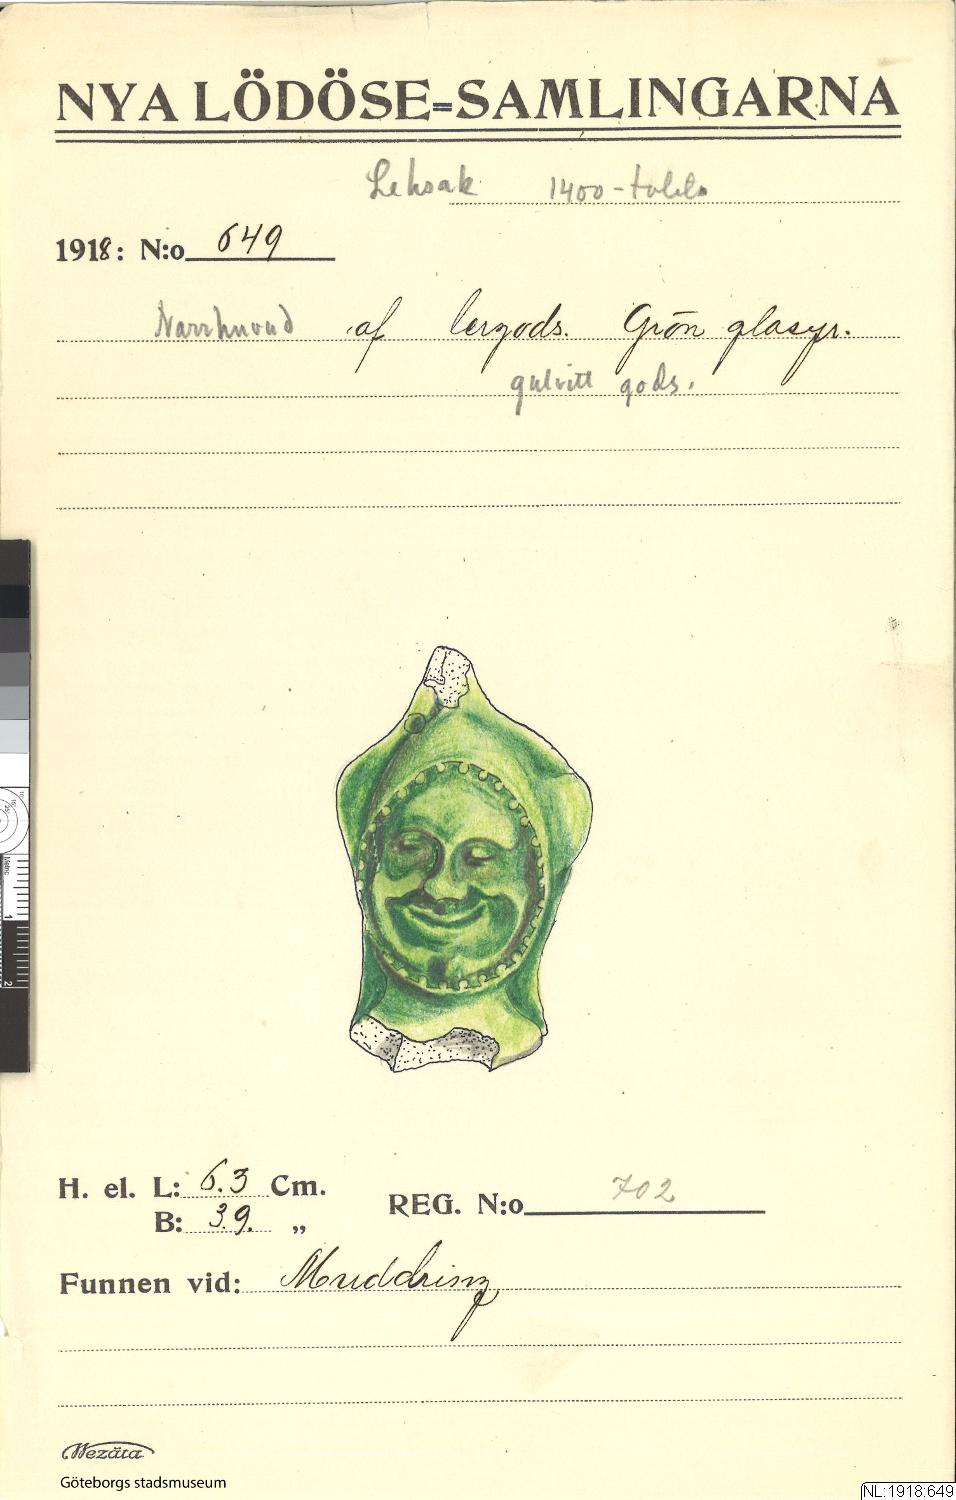 NYA LÖDÖSE=SAMLINGARNA
Leksak 1400-talet
1918: N:o 649
Narrhuvud af lergods. Grön glasyr.
gulvitt gods.
H. el. L: 6.3 Cm.
REG. N:o 702
B: 3.9. „
Funnen vid: Muddring
Wezäta
Göteborgs stadsmuseum
NL:1918:649